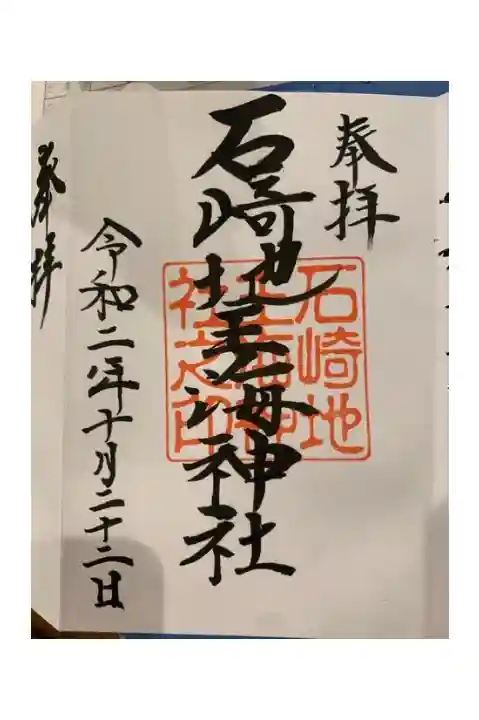 奉拝
石崎地主海神社
石崎地
主海神
社之印
令和二年十月二十二日
奉拝